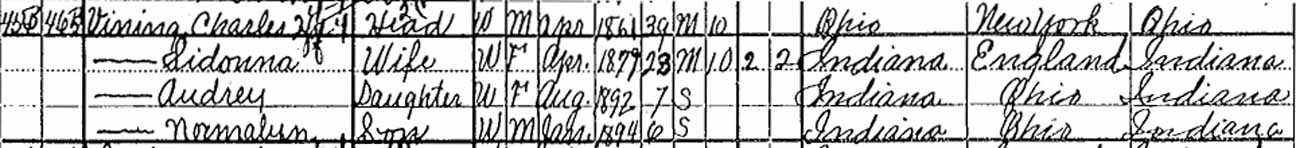 455 465 Vining Charles Head W M Apr 1861 39 M 10 Ohio New York Ohio
— Sidonna Wife W F Apr. 1879 28 M 10 2 2 Indiana England Indiana
— Audrey Daughter W F Aug. 1892 7 S Indiana Ohio Indiana
— Son W M Jan. 1894 6 S Indiana Ohio Indiana